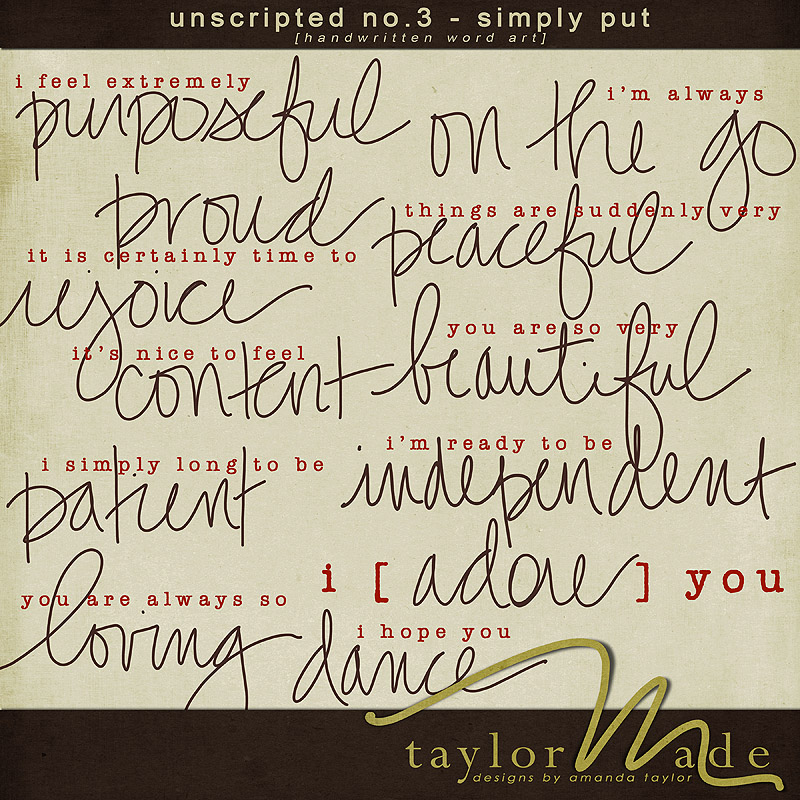 unscripted no.3 - simply put
[handwritten word art]
i feel extremely
purposeful
i'm always
on the go
proud
things are suddenly very
peaceful
it is certainly time to
rejoice
you are so very
beautiful
it's nice to feel
content
i'm ready to be
independent
i simply long to be
patient
i [adore] you
you are always so
loving
i hope you
dance
taylorMade
designs by amanda taylor